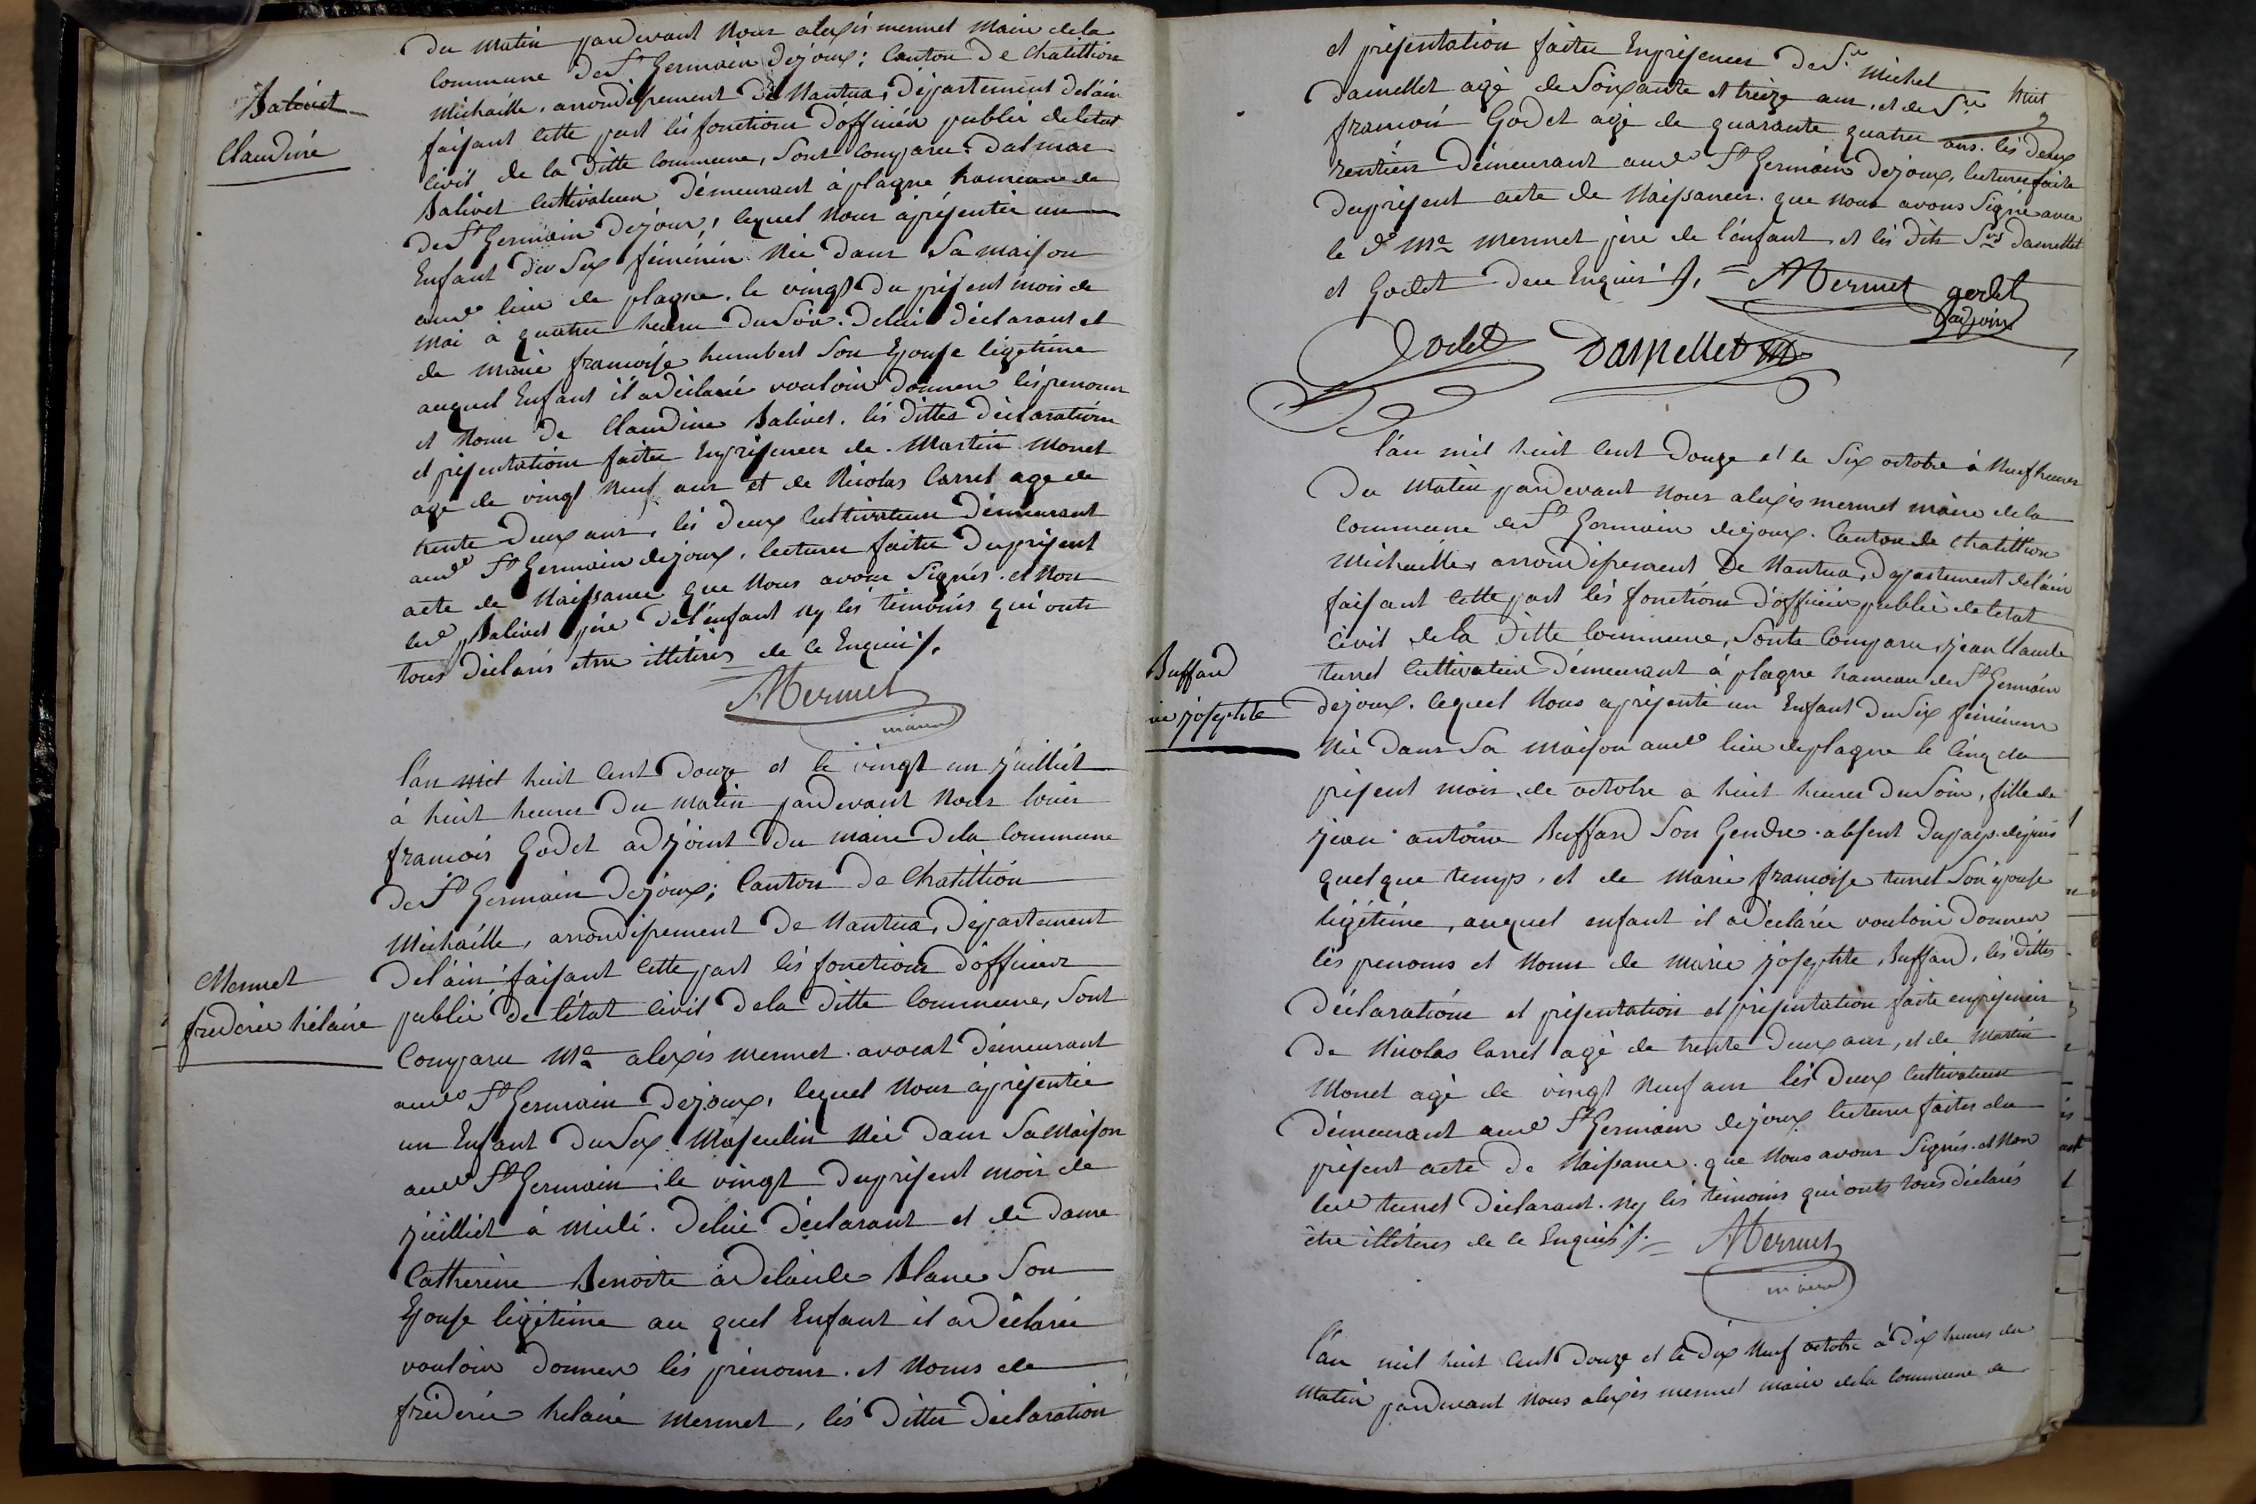 du matin pardevant nous alexis mermet maire de la
commune de St Germain dejoux; Canton de Chatillion
Michaille, arrondissement de Nantua, département delain
faisant cette part lés fonctions d'officier public deletat
civil de la ditte commune, sont comparu: dalmac
Balivet cultivateur démeurant à plagne hameau de
de St Germain dejoux, lequel nous à présentée un
Enfant du Sex féminin née dans sa maison
aud lieu de plagne, le vingt du présent mois de
mai à quatre heures du soir. De lui déclarant et
de marie francoise humbert son Epouse ligétime
auquel Enfant il a déclaré vouloir donner lés prenoms
et noms de Claudine Balivet, lés dittes déclaration
et présentation faitte en présence de Martin Monet
age de vingt neuf ans et de Nicolas Carret age de
trente deux ans, lés deux cultivateurs démeurant
aud St Germain dejoux, lecture faitte du présent
acte de Naissance que nous avons signés. et non
led Balivet père de l'enfant ny lés témoins qui onts
tous déclarés etre illitérés de ce Enquis ./.
AMermet
maire
Balivet
Claudine
l'an mil huit cent douze et le vingt un juilliet
à huit heures du matin pardevant nous louis
francois Godet adjoint du maire dela commune
de St Germain Dejoux; Canton de Chatillion
Michaille, arrondissement de Nantua, Département
Delain; faisant cette part lés fonctions d'officier
public de létat civil dela ditte commune, sont
Comparu Me alexis mermet avocat démeurant
aud St Germain Dejoux, lequel nous à présentée
un Enfant du Sex Masculin née dans sa maison
aud St Germain, le vingt du présent mois de
juilliet à midi. Delui déclarant et de dame
Catherine Benoite adelaide Blanc son
Epouse ligétime au quel Enfant il a déclarée
vouloir donner lés prénoms et noms de
fréderic helaire mermet, lés dittes déclaration
Mermet
frederic hélaire
et présentation faitte En présence de Sr Michel
Damellet agé de soixante et treize ans, et de Sr
francois Godet agé de quarante quatre ans. lés deux
rentiers démeurant aud St Germain Dejoux, lecture faite
du présent acte de Naissance que nous avons signé avec
le d Me mermet père de l'enfant et lés dits Srs Damellet
et Godet de ce Enquis ./. AMermet godet
adjoint
Godet Damellet
huit
l'an mil huit cent douze et le six octobre à neuf heures
du matin pardevant nous alexis mermet maire de la
commune de St Germain dejoux. Canton de Chatillion
Michaille, arrondissement de Nantua, département delain
faisant cette part lés fonctions d'officier public de letat
civil dela ditte commune, sonts comparu, jean Claude
turret cultivateur démeurant à plagne hameau de St Germain
dejoux. lequel nous a présenté un Enfant du Sex féminin
née dans sa maison aud lieu de plagne le cinq du
présent mois de octobre a huit heures du soir, fille de
jean antoine Buffard son Gendre absent du pays depuis
quelque temps, et de marie francoise turret son épouse
ligétime, auquel enfant il a déclarée vouloir donner
lés prenoms et noms de marie josephte Buffard, lés dittes
déclaration et présentation et présentation faite en présence
de Nicolas Carret agé de trente deux ans, et de Martin
Monet agé de vingt neuf ans lés deux cultivateurs
démeurant aud St Germain dejoux lecture faites du
présent acte de Naissance que nous avons signés. et non
led turret déclarant. ny lés témoins qui onts tous déclarés
être illitérés de ce Enquis ./. AMermet
maire
Buffard
josephte
l'an mil huit cent douze et le dix neuf octobre à dix heures du
matin pardevant nous alexis mermet maire de la commune de